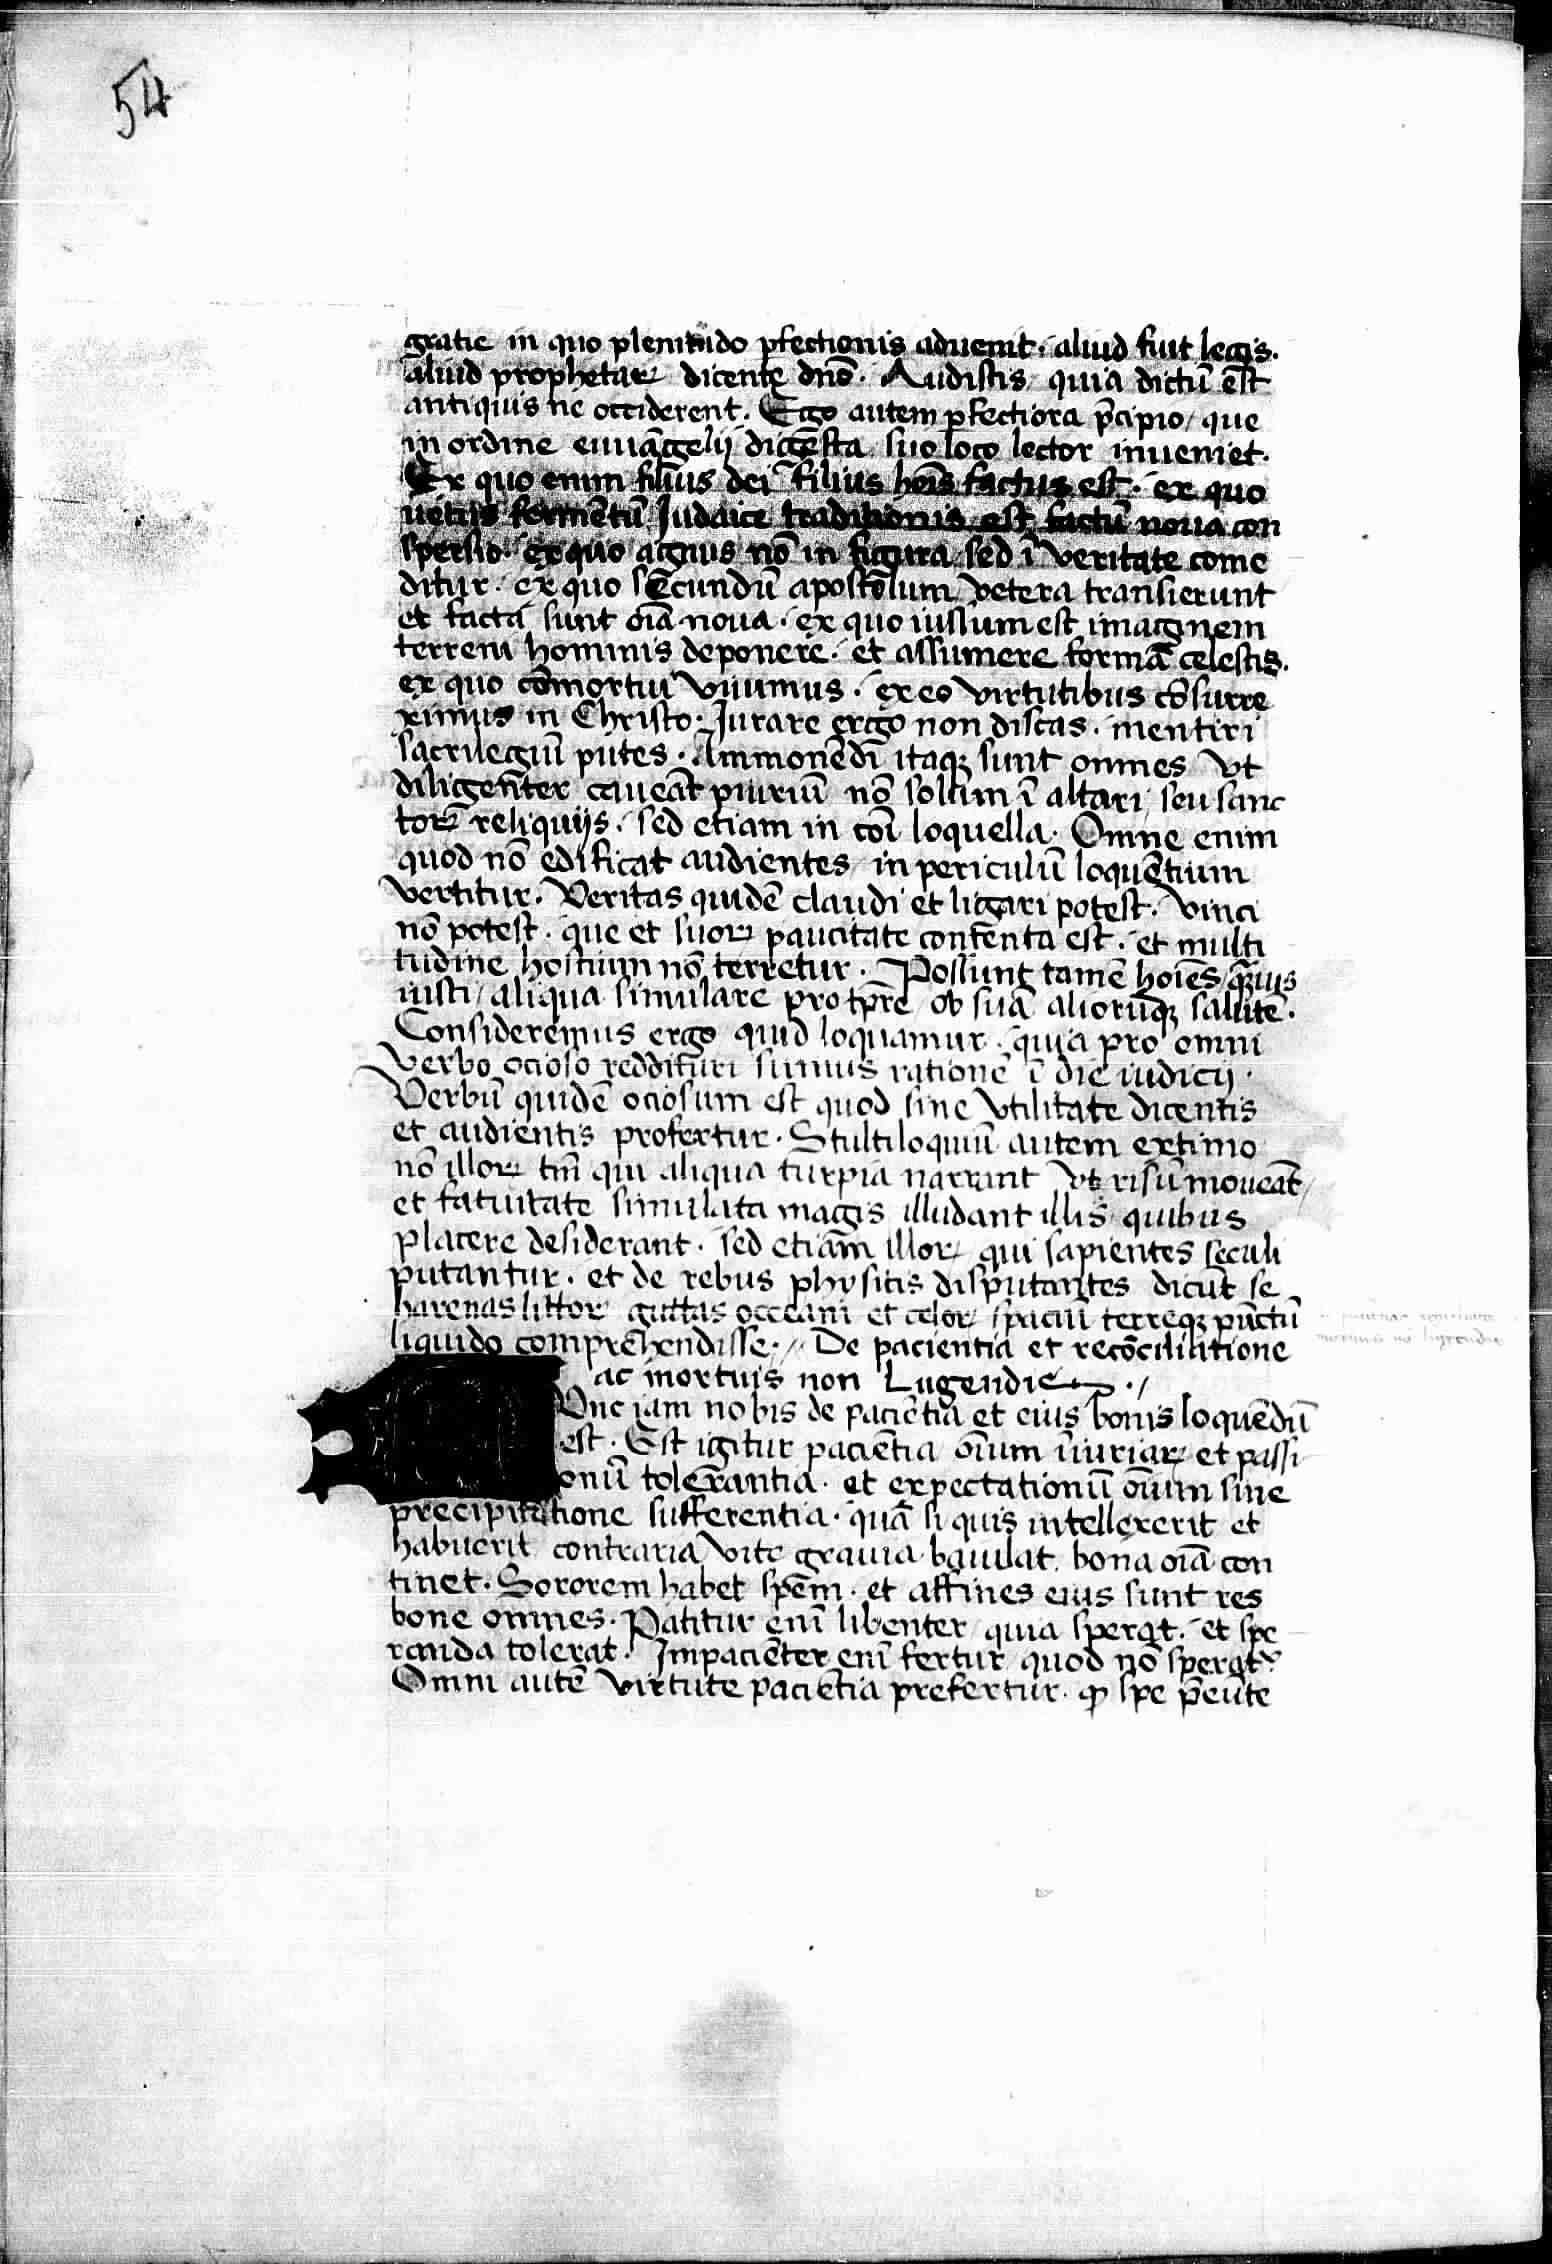 54
gratie in quo plenitudo ꝑfectionis aduenit · aliud fuit legis ·
aliud prophetaꝝ dicente dnō · Audistis quia dictū est
antiquis ne occiderent · Ego autem ꝑfectiora p̄cipio / que
in ordine euuāgelij digesta suo loco lector inueniet ·
Ex quo enim filius dei filius hoīs factus est · ex quo
uetus fermētū Iudaice traditionis est factū noua con
spersio · ex quo agnus nō in figura / sed ī veritate come
ditur · ex quo secundū apostolum vetera transierunt
et facta sunt oīa noua · ex quo iussum est imaginem
terreni hominis deponere · et assumere formā celestis ·
ex quo cōmortui viuimus · ex eo virtutibus cōsurre
ximus in Christo · Iurare ergo non discas · mentiri
sacrilegiū putes · Ammonēdi itaqꝫ sunt omnes vt
diligenter caueāt ꝑiuriū nō solum ī altari / seu sanc
toꝝ reliquijs · sed etiam in cōi loquella · Omne enim
quod nō edificat audientes / in periculū loquētium
vertitur · Veritas quidē claudi et ligari potest · vinci
nō potest · que et suoꝝ paucitate contenta est · et multi
tudine hostium nō terretur · Possunt tamē hoīes / qͣꝫuis
iusti / aliqua simulare pro tp̄re / ob suā aliorūqꝫ salutē ·
Consideremus ergo quid loquamur · quia pro omni
verbo ocioso reddituri sumus rationē ī die iudicij ·
Verbū quidē ociosum est quod sine vtilitate dicentis
et audientis profertur · Stultiloquiū autem extimo
nō illoꝝ tm̄ qui aliqua turpia narrant vt risū moueāt /
et fatuitate simulata magis illudant illis quibus
placere desiderant · sed etiam illoꝝ qui sapientes seculi
putantur · et de rebus physicis disputantes dicūt se
harenas littoꝝ guttas occeani et celoꝝ spaciū terreqꝫ pūctū
liquido comprehendisse · // De pacientia et recōciliatione
ac mortuis non Lugendis · /
Vnc iam nobis de paciētia et eius bonis loquēdū
est · Est igitur paciētia oīum īiuriaꝝ et passi
onū tolerantia · et expectationū oīum sine
precipitatione sufferentia · quā si quis intellexerit et
habuerit contraria vite grauia baiulat bona oīa con
tinet · Sororem habet spem · et affines eius sunt res
bone omnes · Patitur enī libenter / quia sperat · et spe
randa tolerat · Impaciēter enī fertur quod nō sperat ·
Omni autē virtute paciētia prefertur · ꝙ spe p̄eūte